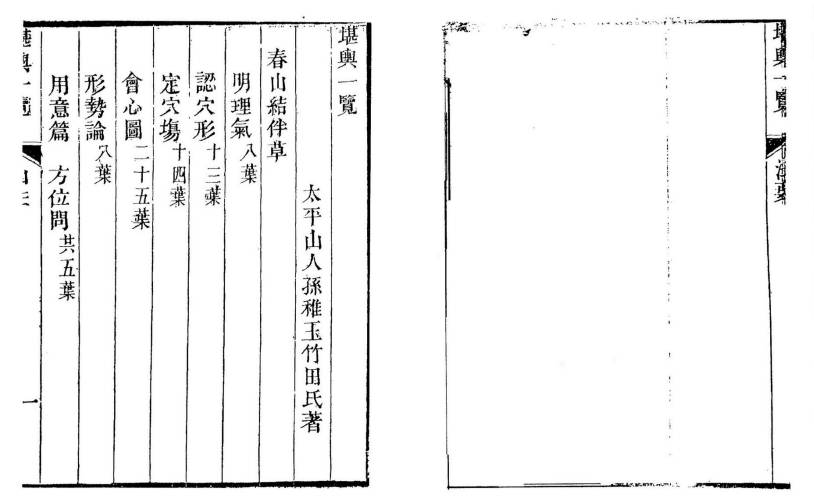 堪輿一覽
太平山人孫稚玉竹田氏著
春山結伴草
明理氣八葉
認穴形十三葉
定穴塲十四葉
會心圖二十五葉
形勢論八葉
用意篇 方位問共五葉
堪輿一覽
一